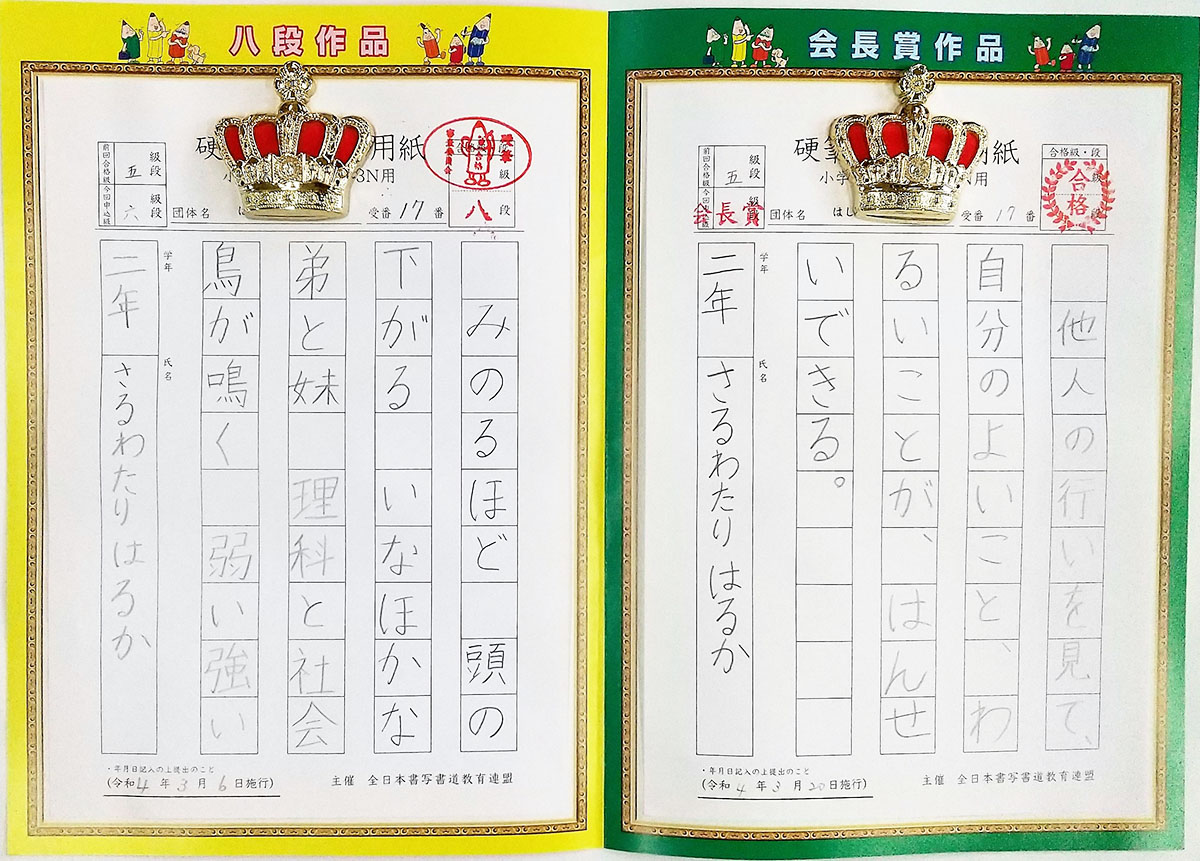 八段作品
硬 用紙
小 3N用
前回合格級 五 級段
今回申込級 六 級段
硬筆 合格 審査委員会
級
八段
団体名 は
受番 17 番
みのるほど 頭の
下がる いなほかな
弟と妹 理科と社会
鳥が鳴く 弱い強い
学年 二年
氏名 さるわたりはるか
・年月日記入の上提出のこと
(令和4年3月6日施行)
主催 全日本書写書道教育連盟
会長賞作品
硬筆 用紙
小学 用
前回合格級 五 級段
今回申込級 級段
会長賞
合格級・段
級
合格
団体名 はし
受番 17 番
他人の行いを見て、
自分のよいこと、わ
るいことが、はんせ
いできる。
学年 二年
氏名 さるわたりはるか
・年月日記入の上提出のこと
(令和4年3月20日施行)
主催 全日本書写書道教育連盟